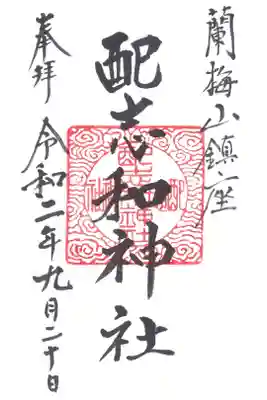 蘭梅山鎮座
配志和神社
奉拝
令和二年九月二十日